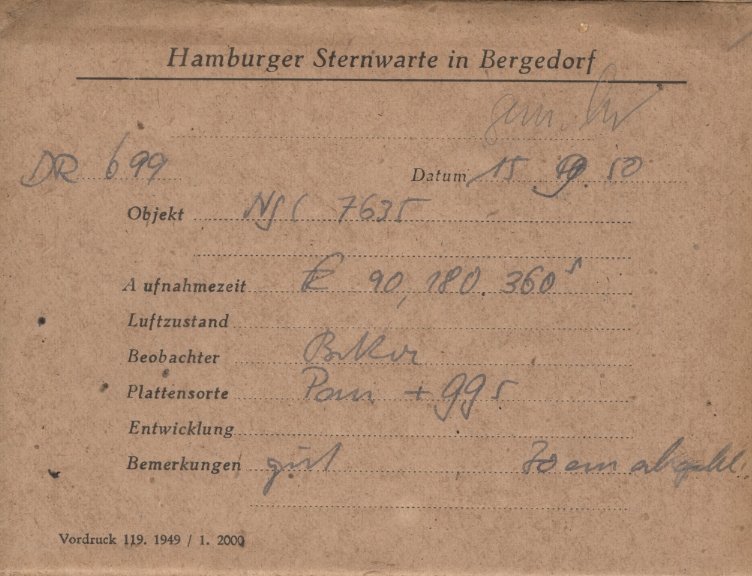 Hamburger Sternwarte in Bergedorf
DR 699 Datum 15 50
Objekt NGC 7635
Aufnahmezeit 90, 180, 360 s
Luftzustand
Beobachter
Plattensorte Pan + GG5
Entwicklung
Bemerkungen gut
Vordruck 119. 1949 / 1. 2000